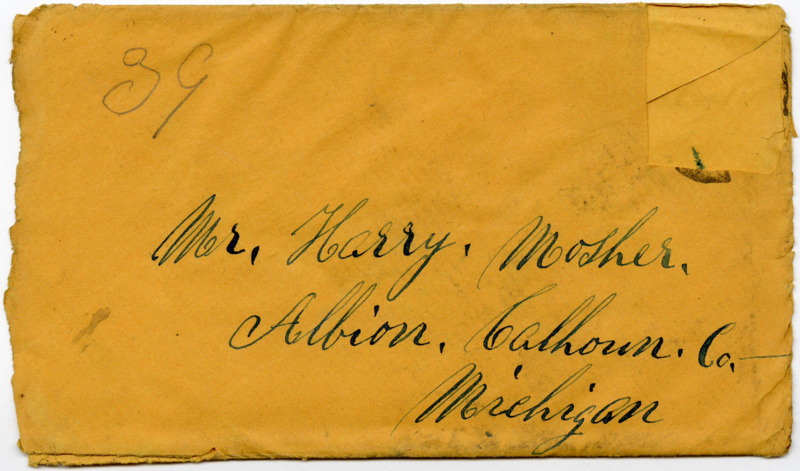 39
Mr. Harry. Mosher.
Albion. Calhoun. Co.
Michigan